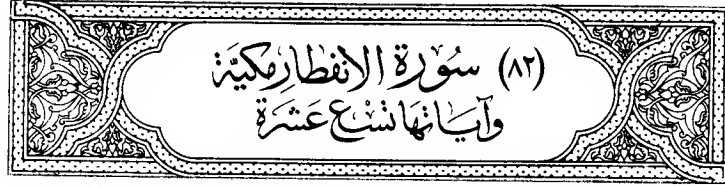 (٨٢) سُورَة الانفطار مكيَّة
وآياتها تسْع عَشرَة